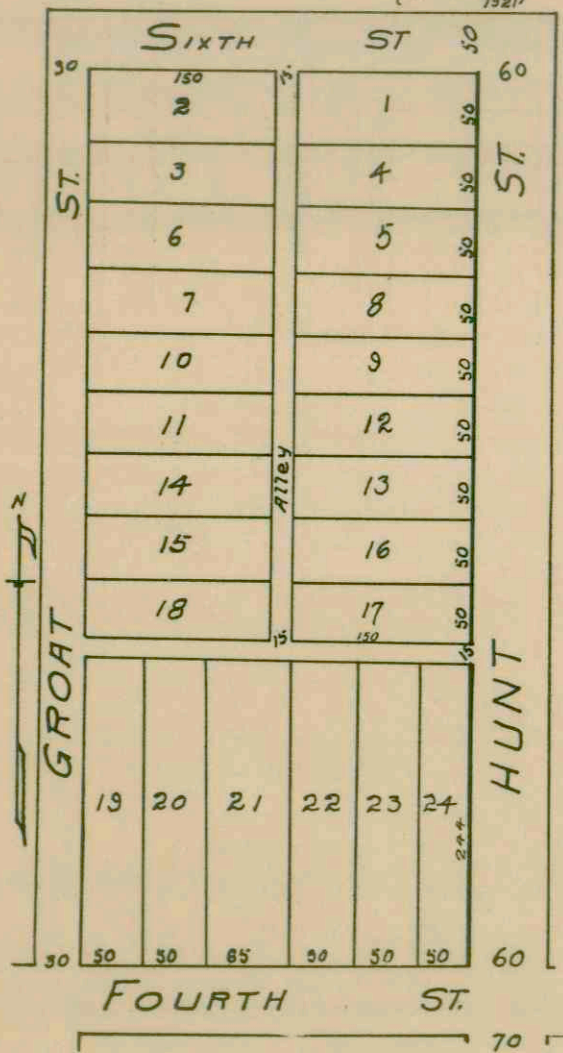 1921
SIXTH ST 50
30 150 15 60
2 1 50
ST. ST.
3 4 50
6 5 50
7 8 50
10 9 50
11 12 50
Alley
14 13 50
N
15 16 50
18 17 50
15 150 15
GROAT
HUNT
19 20 21 22 23 24
244
30 50 50 65 50 50 50 60
FOURTH ST.
70